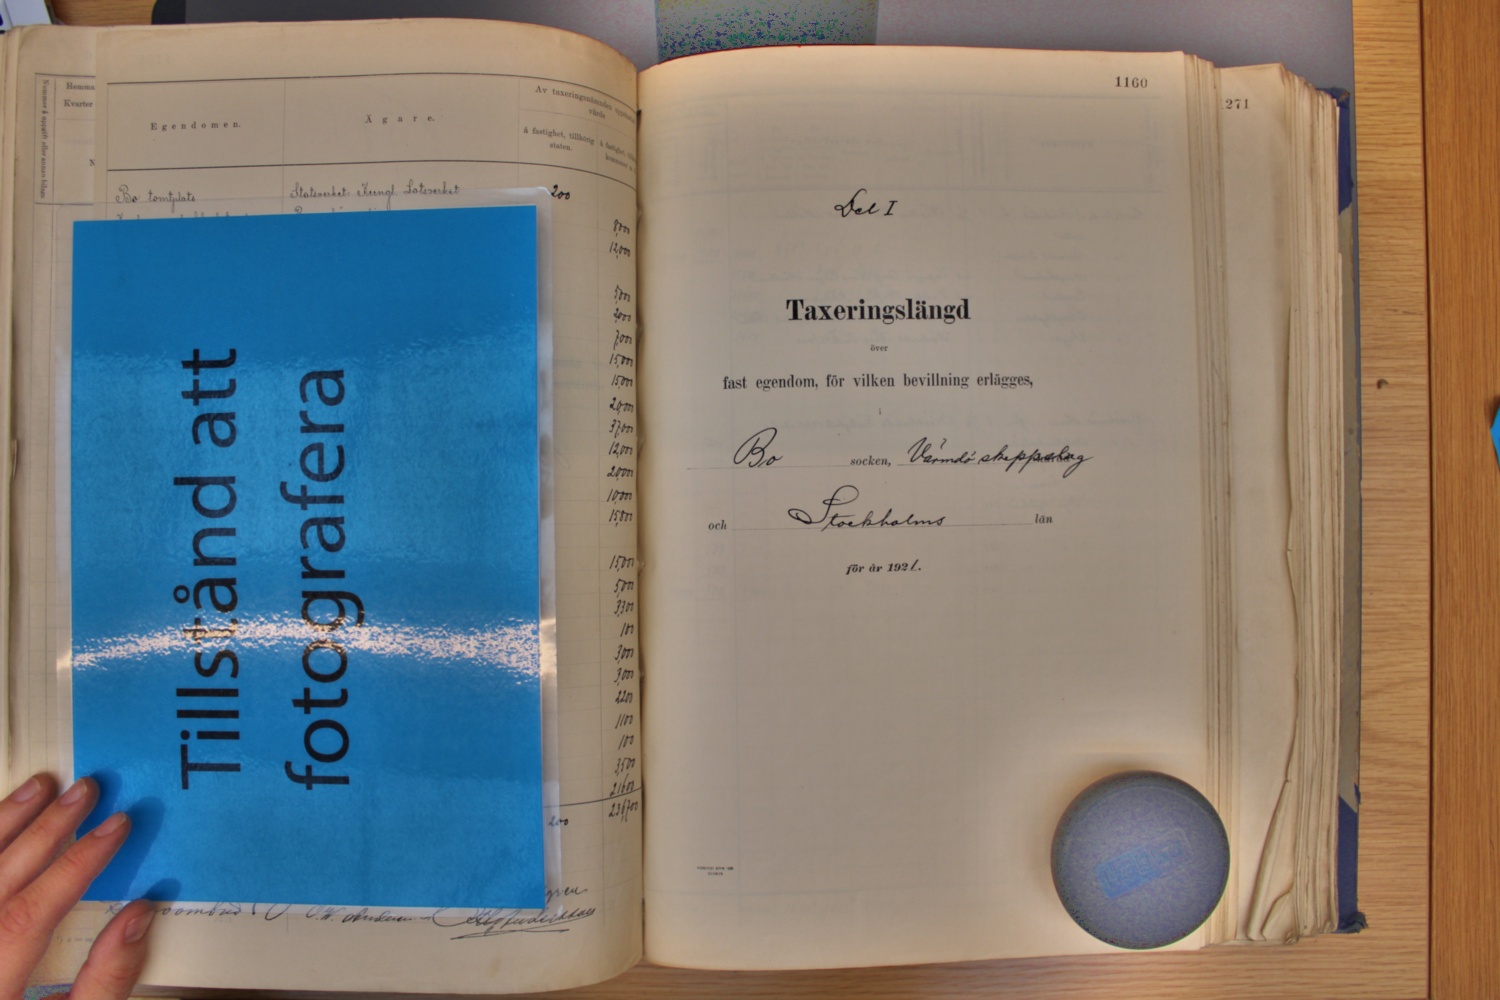 Nummer å uppgift eller annan bilaga
Hemma
Kvarter
N
Egendomen.
Ägare.
Av taxeringsnämnden
värde
å fastighet, tillhörig staten.
å fastighet,
Bo tomtplats
Statsverket Kungl. Lotsverket
200
8,000
12,000
5,000
2,000
7,000
15,000
15,000
20,000
37,000
12,000
20,000
10,000
15,800
15,000
5,000
3,300
100
3,000
3,000
2,200
1,100
100
3,500
200
Tillstånd att
fotografera
1160
271
Del I
Taxeringslängd
över
fast egendom, för vilken bevillning erlägges,
i
Bo socken, Värmdö skeppslag
och Stockholms län
för år 1921.